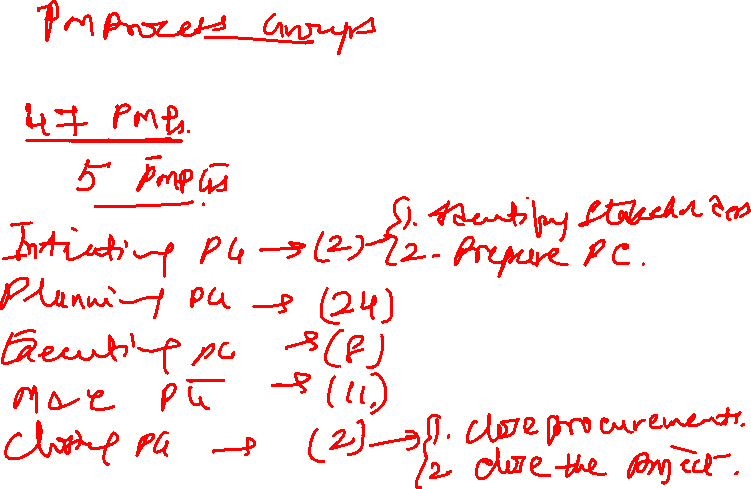 PM Process Groups
47 PMPs.
5 PMPGs
Initiating PG → (2) → { 1. Identifying Stakeholders
2. Prepare PC.
Planning PG → (24)
Executing PG → (8)
M & C PG → (11)
Closing PG → (2) → { 1. close procurements.
2. close the project.